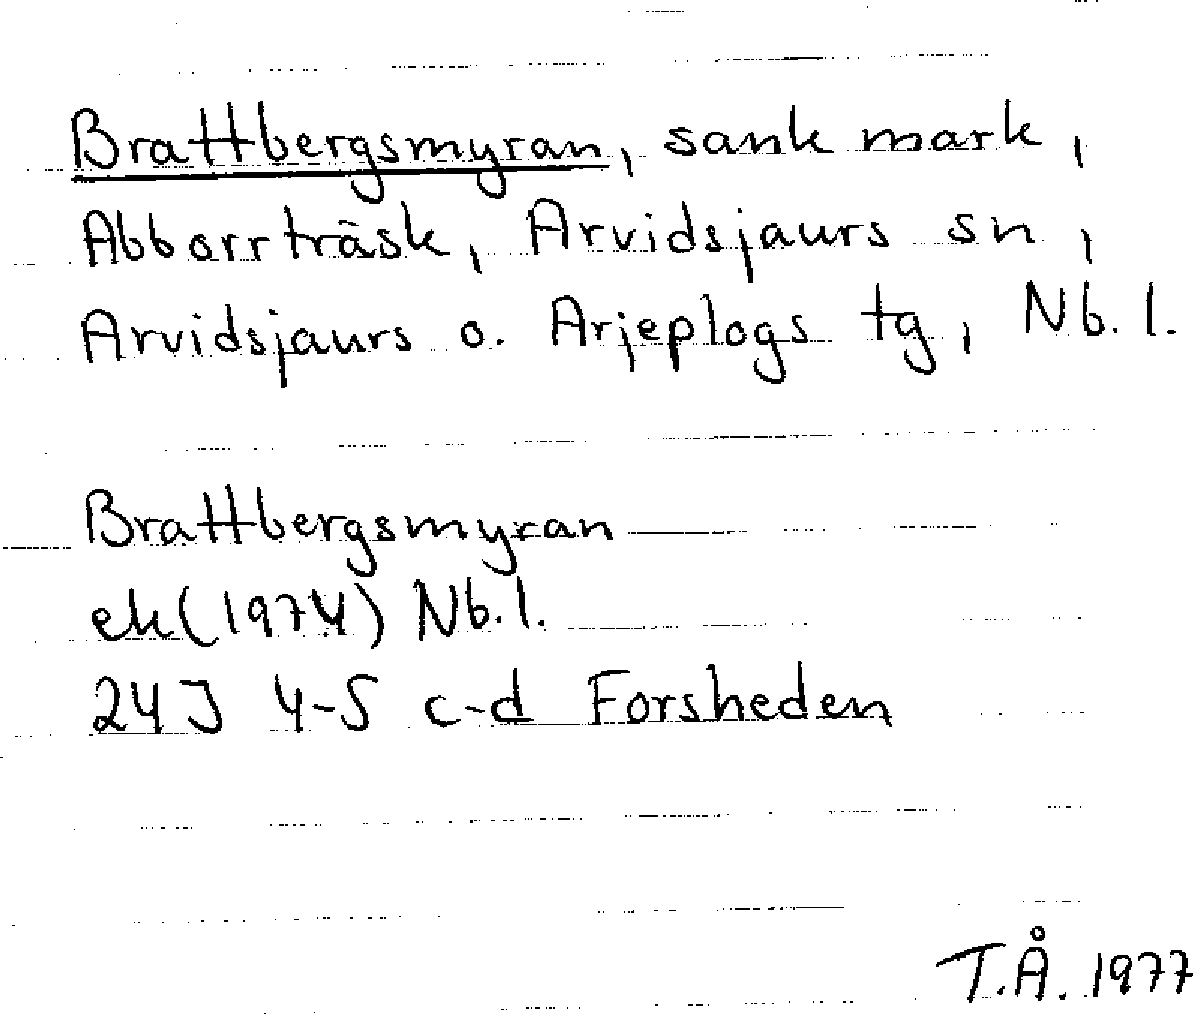 Brattbergsmyran, sank mark,
Abborrträsk, Arvidsjaurs sn,
Arvidsjaurs o. Arjeplogs tg, Nb. l.
Brattbergsmyran
ek (1974) Nb. l.
24J 4-5 c-d Forsheden
T.Å. 1977